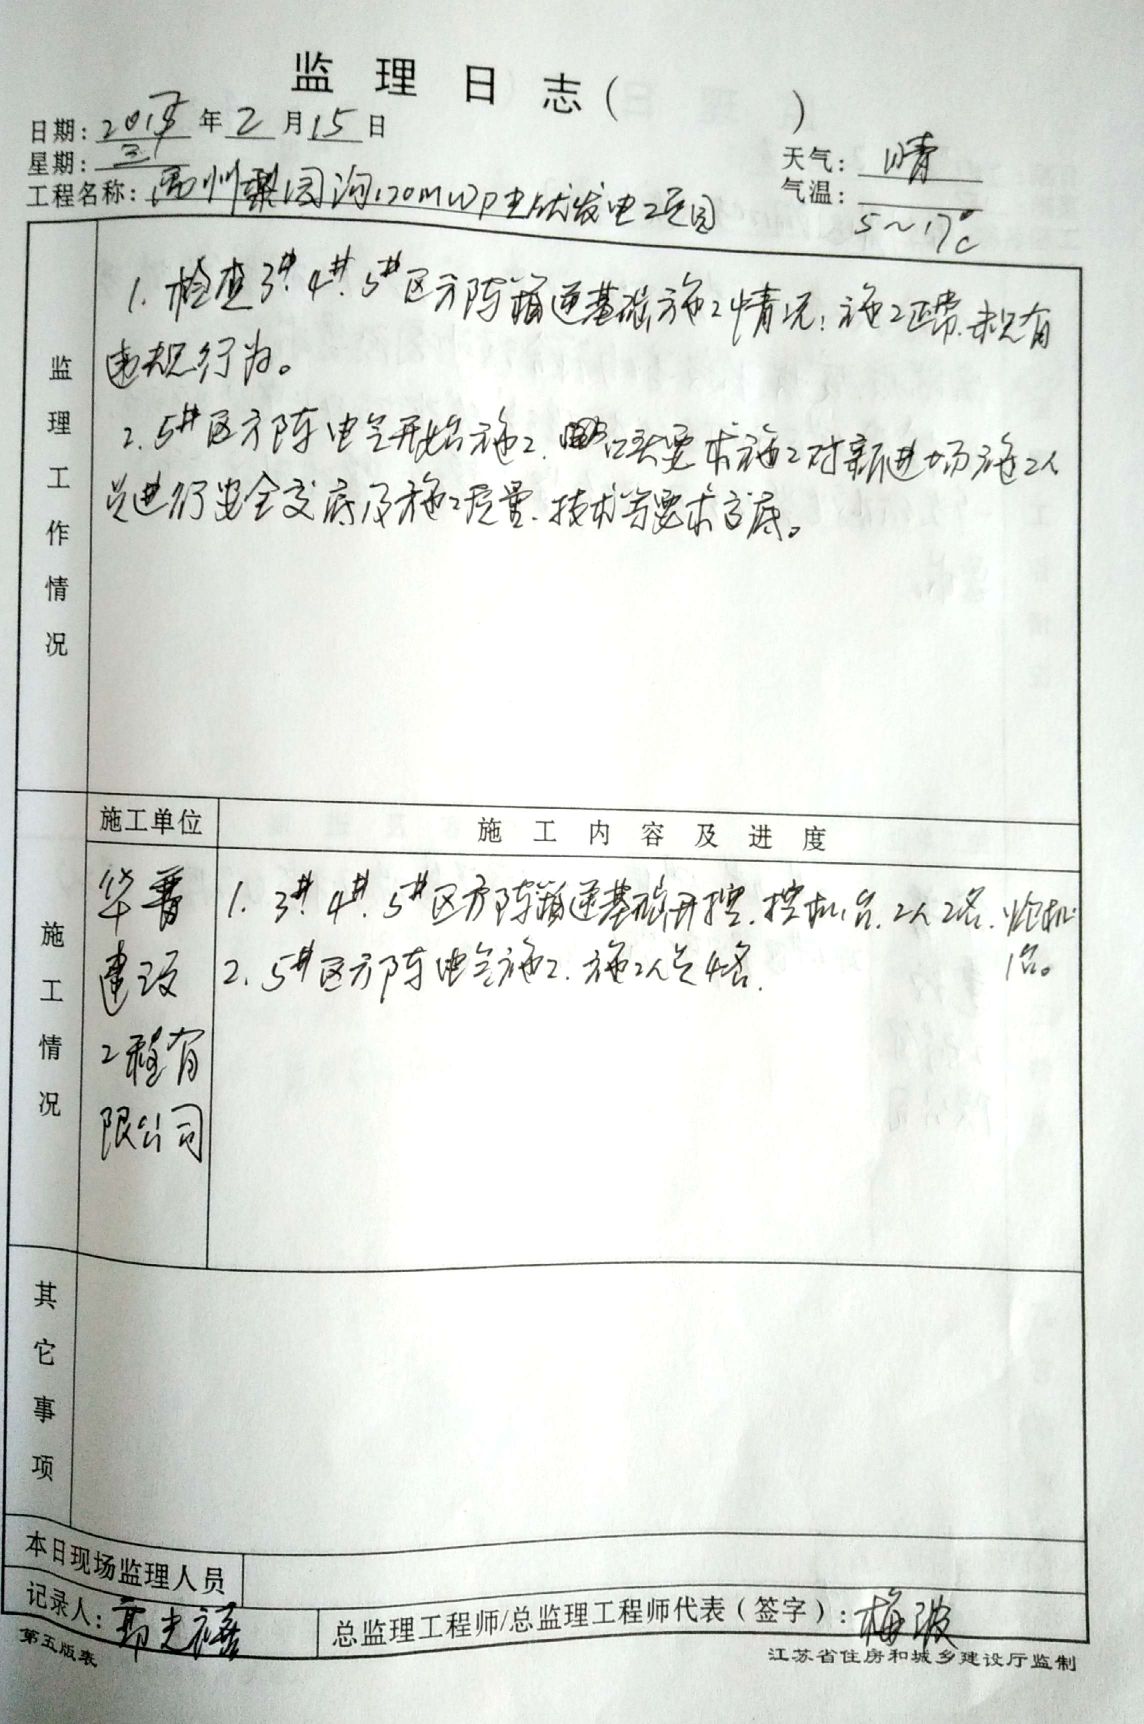 监理日志( )
日期: 2017年2月15日
星期: 三
天气: 晴
气温: 5～17℃
工程名称: 禹州梨园沟120MWp光伏发电工程
监理工作情况
1. 检查3#、4#、5#区方阵箱逆基础施工情况: 施工正常、未见有
违规行为。
2. 5#区方阵电气开始施工、口头要求施工对新进场施工人
员进行安全交底及施工质量、技术等要求交底。
施工单位
施工内容及进度
施工情况
华晋
建设
工程有
限公司
1. 3#、4#、5#区方阵箱逆基础开挖、挖机1台、工人2名、炮机
1台。
2. 5#区方阵电气施工、施工人员4名.
其它事项
本日现场监理人员
记录人: 郭光禧
总监理工程师/总监理工程师代表(签字): 梅波
第五版表
江苏省住房和城乡建设厅监制